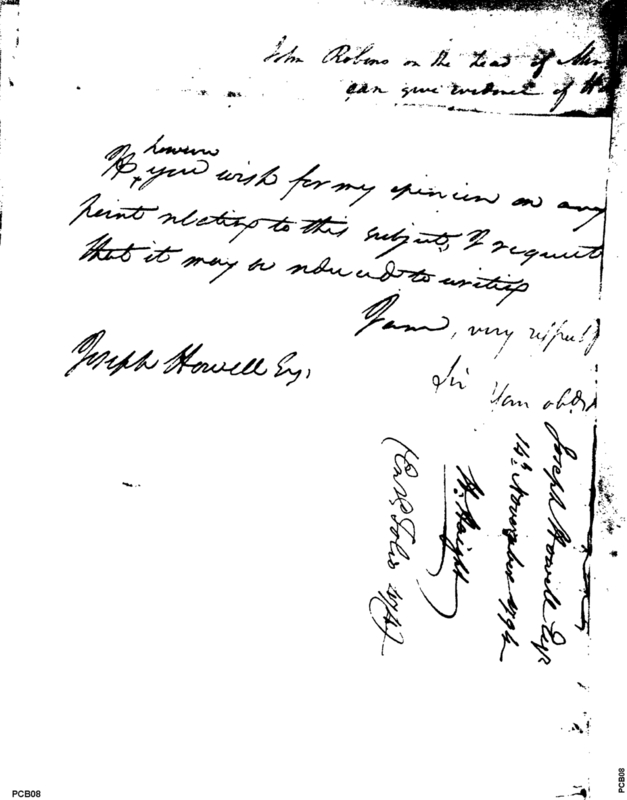 John Robins on the head of
can give evidence of
however
If you wish for my opinion on any
point relating to this subject, I request
that it may be reduced to writing
I am, very respect
Sir
Your obed
Joseph Howell Esq.
Joseph Howell Esqr
14th November 1794
H. Haight
PCB08
PCB08